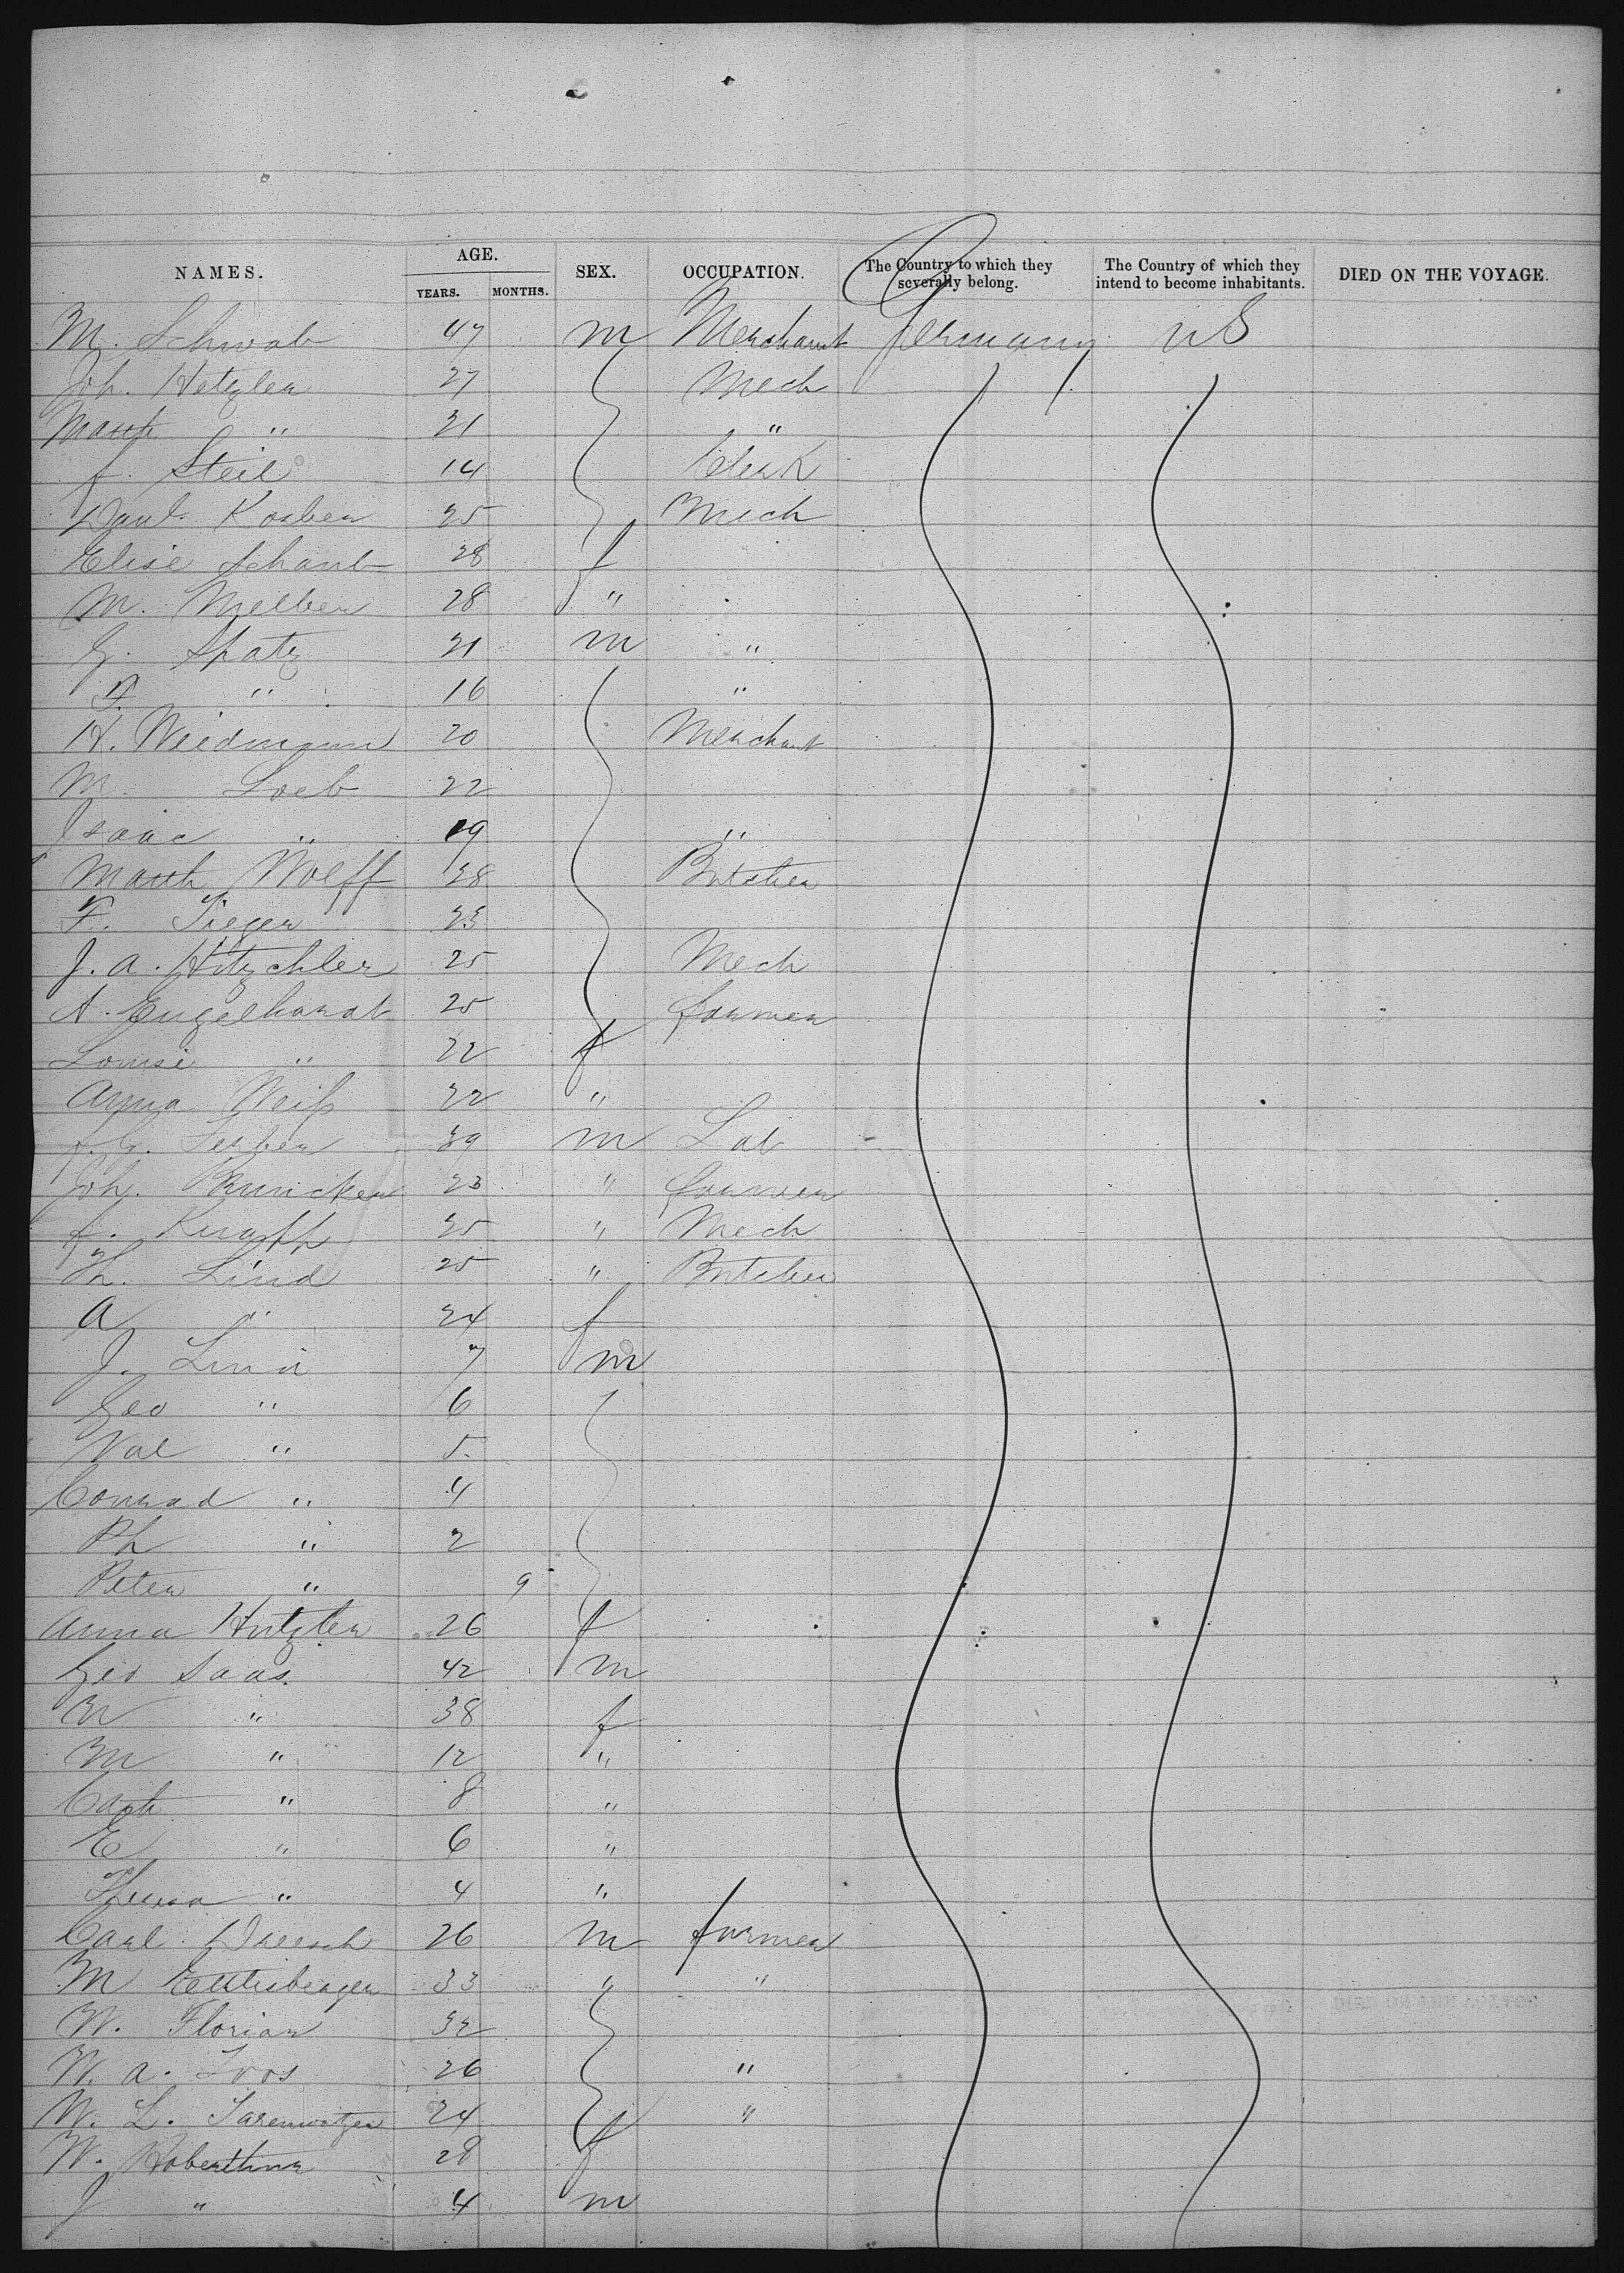 NAMES. AGE. YEARS. MONTHS. SEX. OCCUPATION. The Country to which they severally belong. The Country of which they intend to become inhabitants. DIED ON THE VOYAGE.
M. Schwab 47 m Merchant Germany US
Joh. Hetzler 27 Mech
Math " 21 "
f. Steil 14 Clerk
25 Mech
Elise Schaub 28 f
M. 28 "
G. Spatz 21 m "
F. " 16 "
H. Weidmann 20 Merchant
M. Loeb 22
Isaac " 19 "
Math Wolff 28 Butcher
F. Tieger 23
J. A. 25 Mech
A. Engelhardt 25 farmer
Louise " 22 f
Anna Weiß 22 "
39 m Lab
Joh. 23 " farmer
f. 25 " Mech
Lind 25 " Butcher
A " 24 f
J. Lind 7 m
Geo " 6
Val " 5
Conrad " 4
Ph " 2
Peter " 9
Anna Hutzler 26 f
Geo Saas 42 m
" 38 f
M " 12 "
Cath " 8 "
E " 6 "
" 4 "
Carl 26 m farmer
M 33 " "
W. Florian 32
W. A. Loos 26 "
W. L. 24 "
W. 28 f
J " 4 m